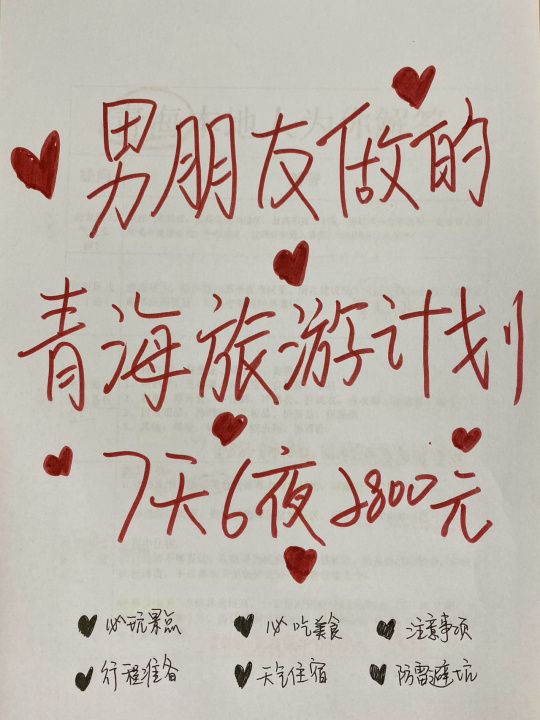 男朋友做的
青海旅游计划
7天6夜2800元
必玩景点 必吃美食 注意事项
行程准备 天气住宿 防雷避坑